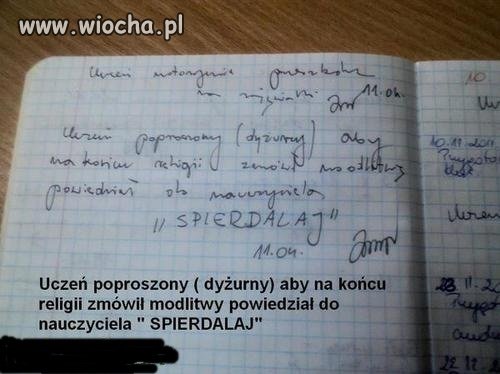 www.wiocha.pl
Uczeń notorycznie przeszkadza
na 11.04.
Uczeń poproszony (dyżurny) aby
na końcu religii zmówił modlitwy
powiedział do nauczyciela
"SPIERDALAJ"
11.04.
10
10.11.2011
23.11.20
22.12.2
Uczeń poproszony ( dyżurny) aby na końcu
religii zmówił modlitwy powiedział do
nauczyciela " SPIERDALAJ"